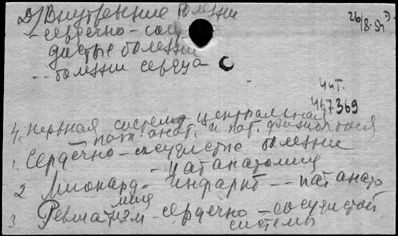 2) Внутренние болезни
- сердечно - сосу
дистые болезни
-- болезни сердца
26/8.54
Чит.
467369
4. Нервная система центральная
- пат. анат. и пат. физиология
1. Сердечно - сосудистые болезни
- патанатомия
2 Миокард - инфаркт -- патанато
мия
3 Ревматизм - сердечно - сосудистой
системы